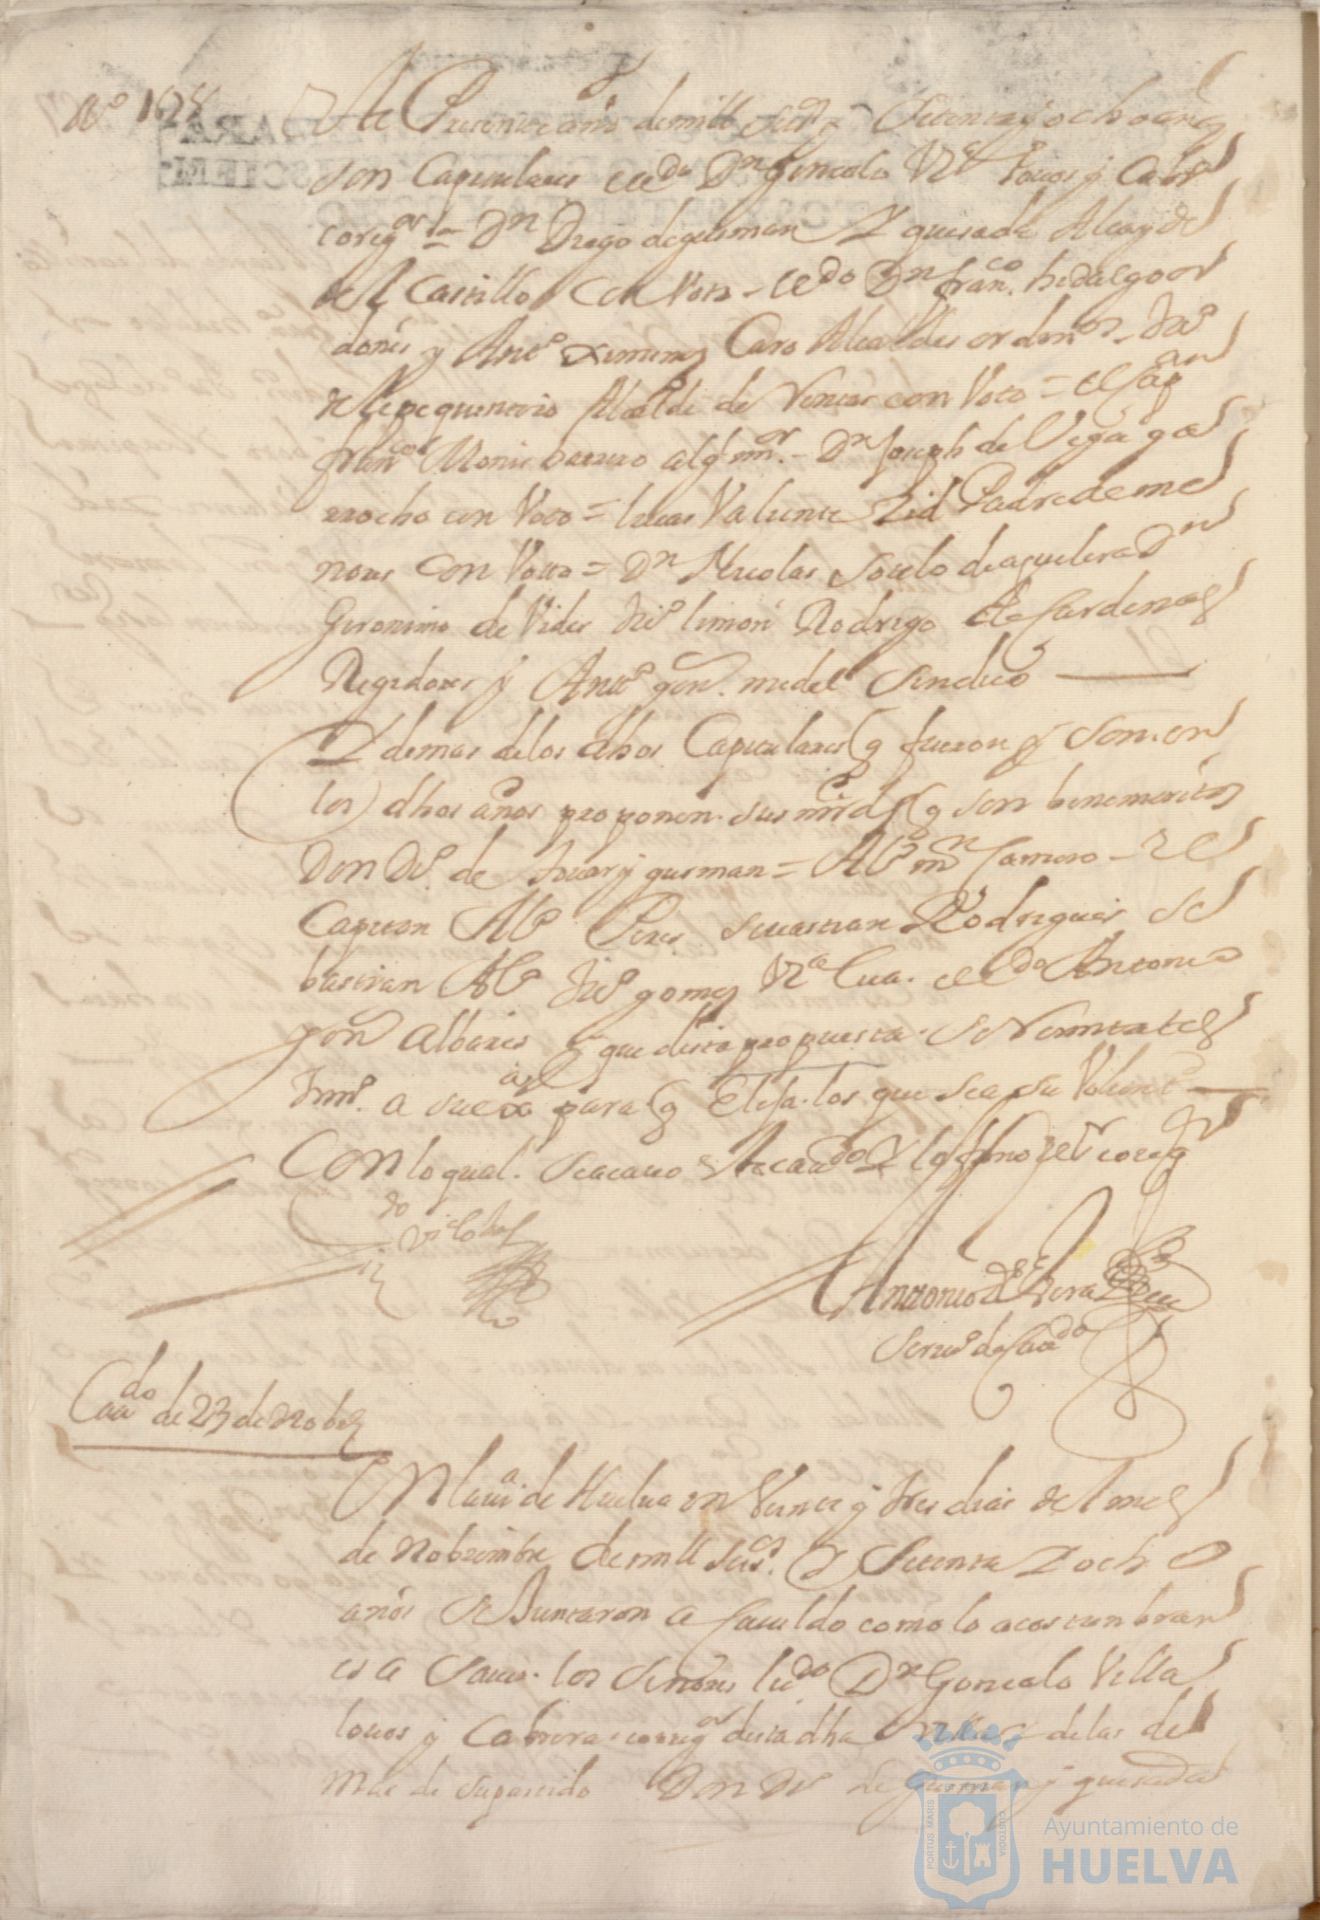 Aº 1678
Este Presente año de mill seisº y Setenta y ocho años
son Capitulares el ledo Dn Gonzalo Vª louos y Cabrª
coregor = Dn Diego de gusman y quesada Alcayde
del Castillo Con Voto - ledo Dn franco hidalgo or
doñes y Antº ximenes Caro Alcaldes ordinºs - Juº
de lepe quinterio Alcalde de Venttas con Voto = el Capan
franco Monis barrero algl mor - Dn Joseph de Vega ga
rrocho con Voto = lucas Valiente Zid Padre de me
nores con Votto = Dn Nicolas Sotelo de aguilera Dn
Geronimo de Vides Juº limon Rodrigo de Cardenas
Regidores y Antº gon. medel Sindico
Y demas de los dhos Capitulares q fueron y son en
los dhos años proponen sus mrds q son benemeritos
Don Dº. de touar y gusman = Alº mn Camero - el
Capitan Alº Peres Seuastian Rodrigues se
bastian Alº Juº gomes Vª Cua. el ledo Antonio
gon albares y que desta propuesta se Remita tes
timº. a su exa para q Elija los que sea su Volunt
Con lo qual se acauo este cauildo y lo firmo el sr coregor
do Villalobos
Antonio de Rivera
Scriuº de Cauдo
Caudo de 23 de Nobre
En la uª de Huelua en Veinte y tres dias del mes
de Nobiembre de mill seisº. y Setenta y ocho
años se Juntaron a Cauildo como lo acostunbran
es a Sauer los Señores licdo Dn Gonzalo Villa
louos y Cabrera coregor desta dha Villa y de las de
mas de su partido Don Dº de Gusman y quesada
PORTUS MARIS CUSTODIA
Ayuntamiento de
HUELVA